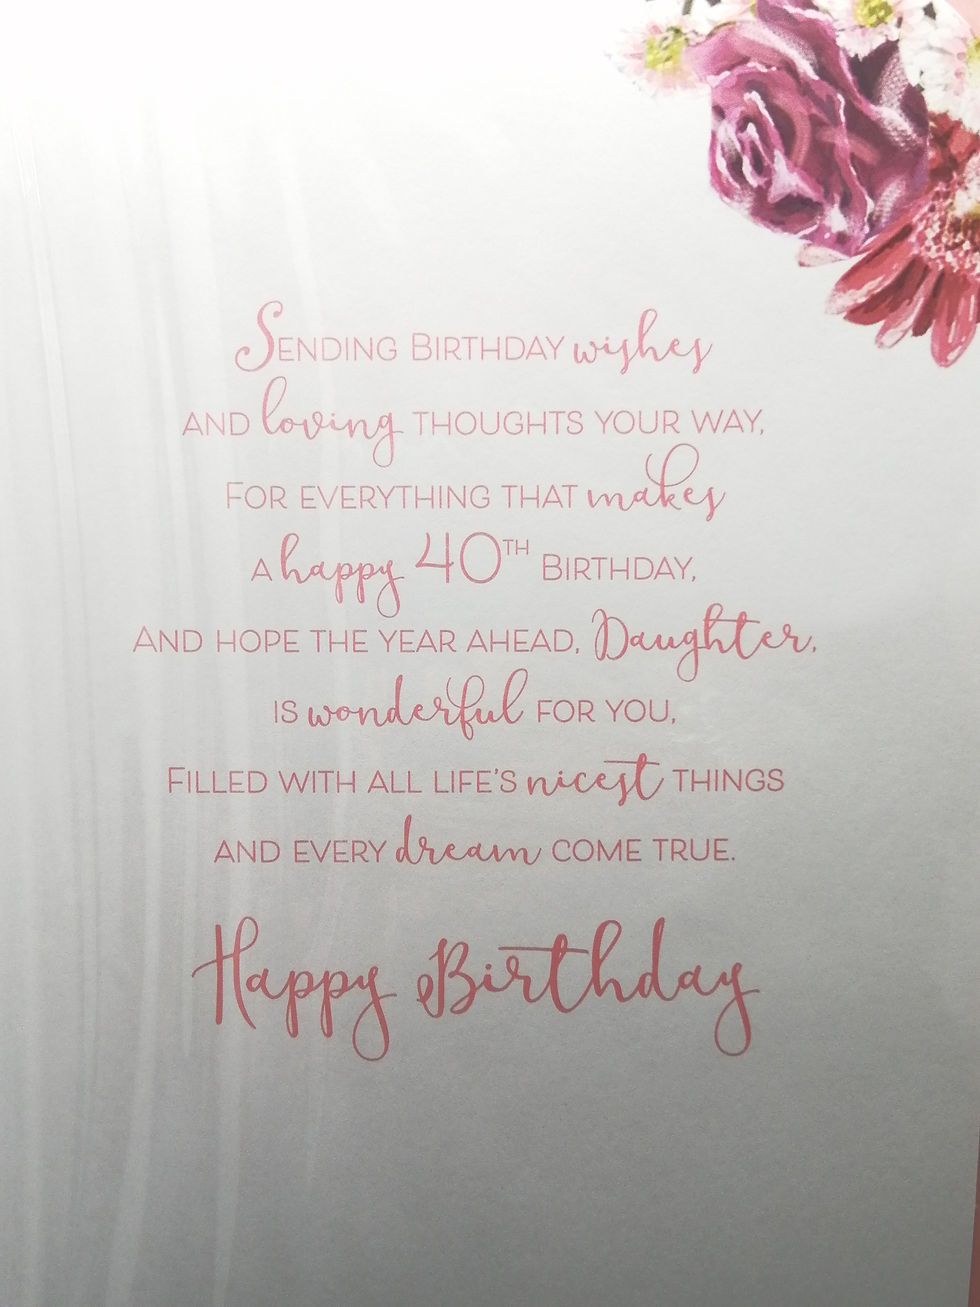 Sending Birthday wishes
and loving thoughts your way,
For everything that makes
a happy 40th Birthday,
And hope the year ahead, Daughter,
is wonderful for you,
Filled with all life's nicest things
and every dream come true.
Happy Birthday